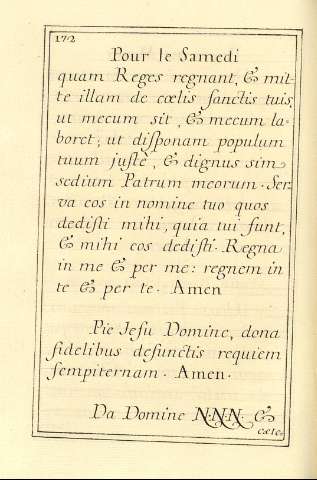 172
Pour le Samedi
quam Reges regnant, & mit-
te illam de cœlis sanctis tuis,
ut mecum sit, & mecum la-
boret, ut disponam populum
tuum justè, & dignus sim
sedium Patrum meorum. Ser-
va eos in nomine tuo quos
dedisti mihi, quia tui sunt,
& mihi eos dedisti. Regna
in me & per me: regnem in
te & per te. Amen
Pie Jesu Domine, dona
fidelibus defunctis requiem
sempiternam. Amen.
Da Domine N.N.N. &
cætc.